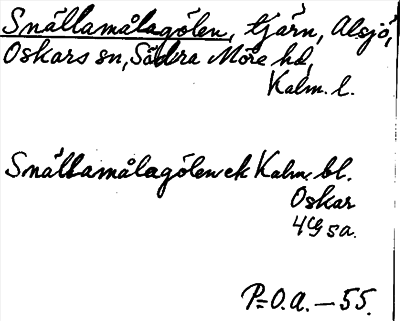 Snällamålagölen, tjärn, Alsjö,
Oskars sn, Södra Möre hd,
Kalm. l.
Snällamålagölen ek Kalm. bl.
Oskar
4G sa.
P=O.A. — 55.